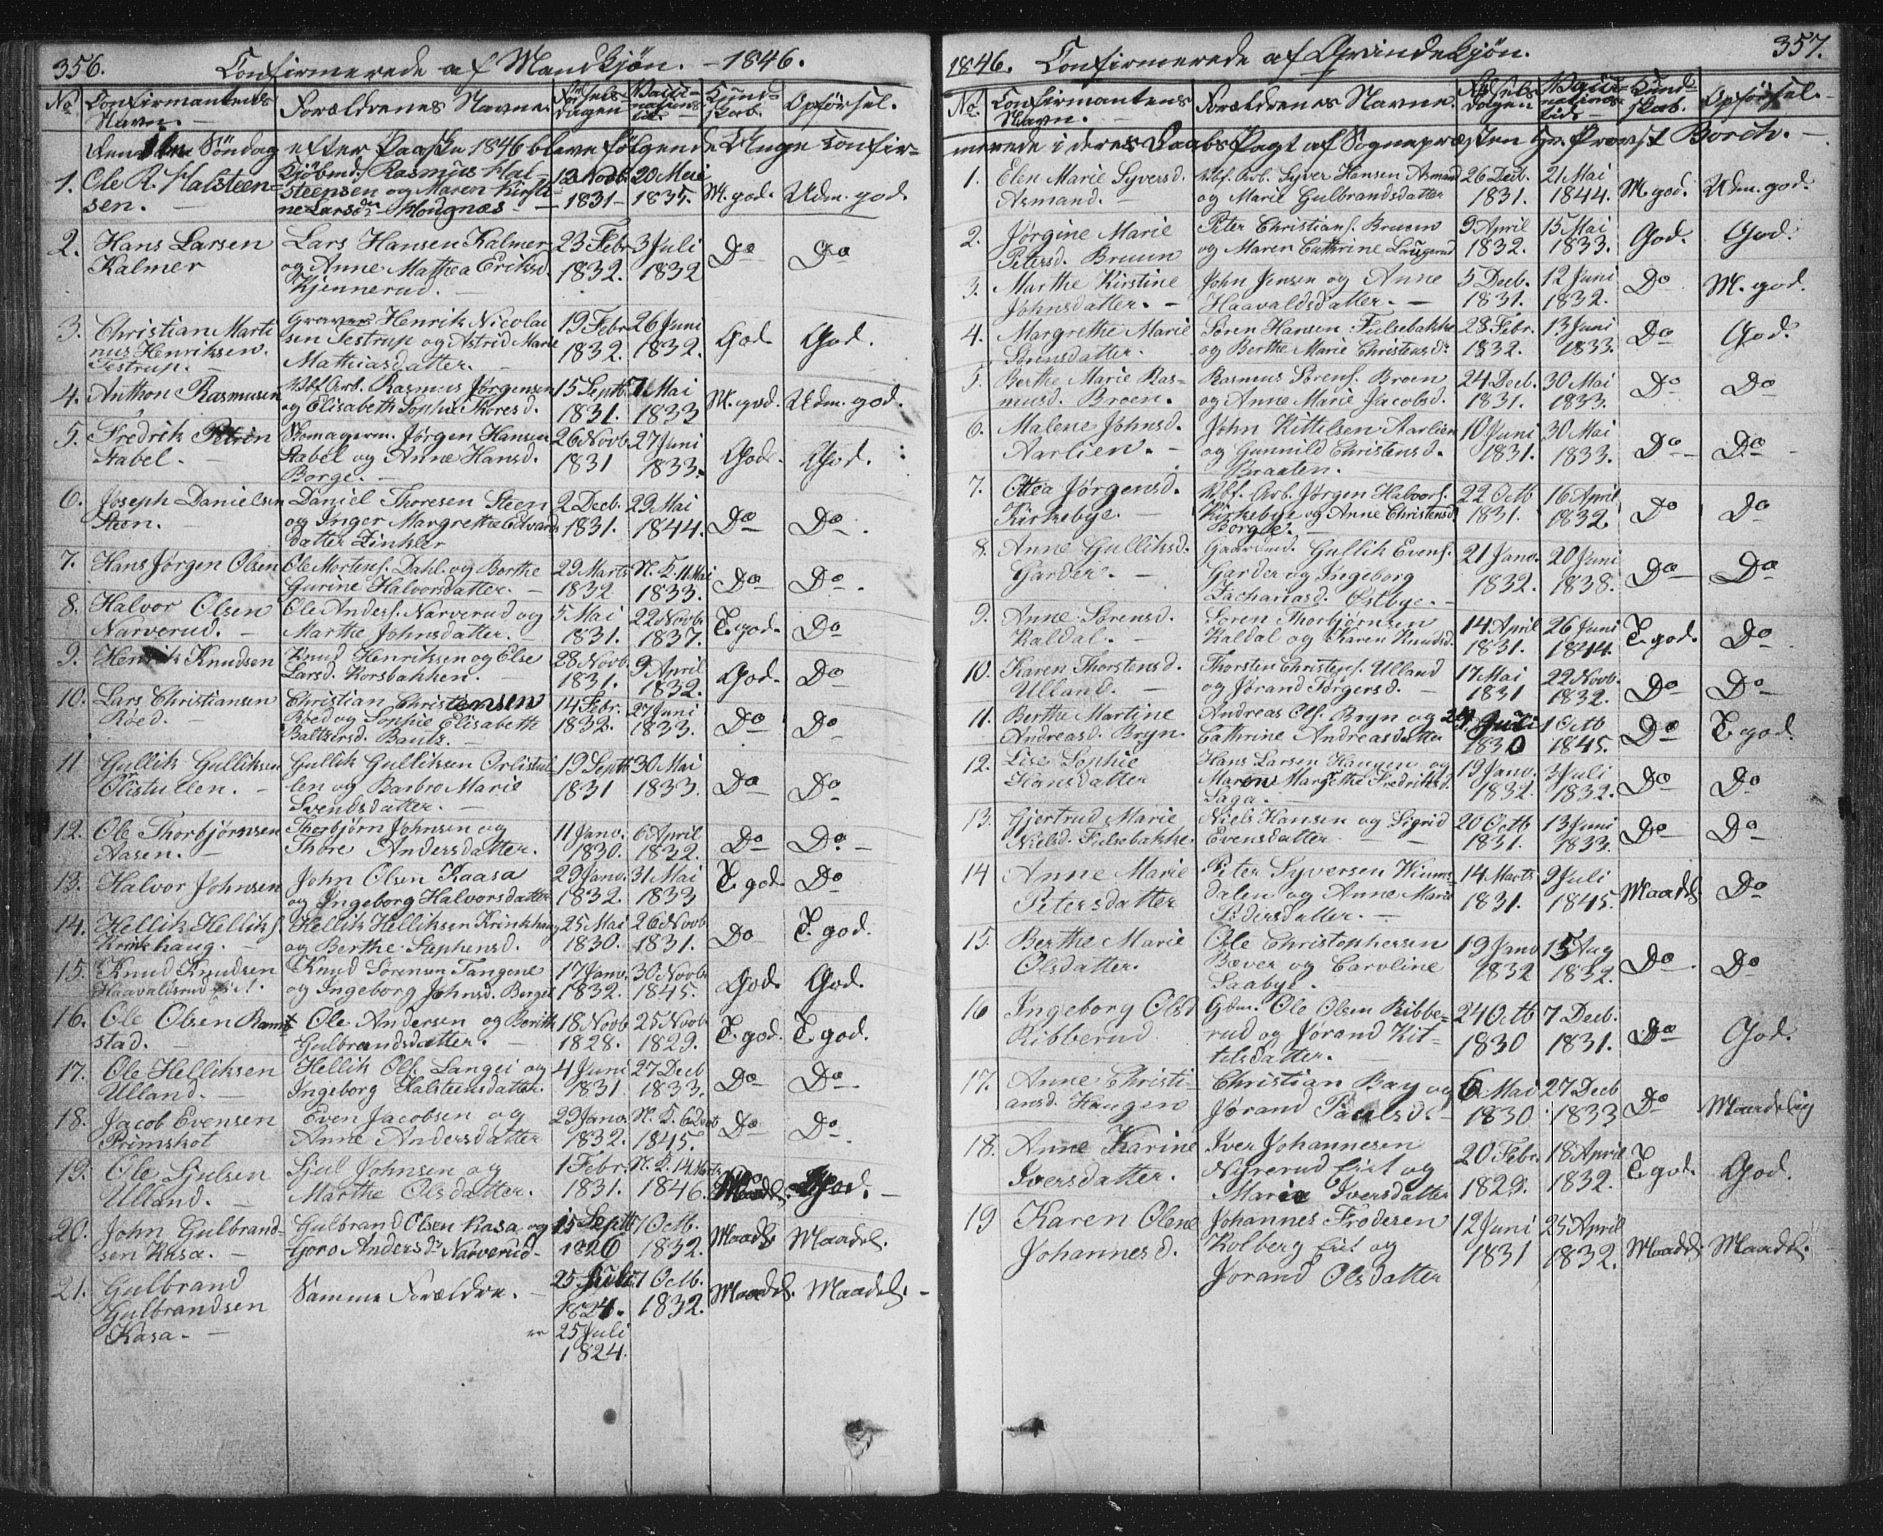 356. Confirmerede af Mandkjøn. - 1846.
No. Confirmantens Navn. - Forældrenes Navne. Fødsels Dagen Vacci-nations tid. - Kund-skab. Opførsel.
Den Søndag efter Paaske 1846 bleve følgende Unge Confir-
1. Ole R. Halsteen- Kjøbmd. Rasmus Hal- 13 Novb. 20 Mai
sen. - steensen og Maren Kirsti- 1831- 1835. M. god. Udm. god.
ne Larsdr Hougnæs -
2. Hans Larsen Lars Hansen Kalmer 23 Febr. 3 Juli Do Do
Kalmer og Anne Mathea Eriksd. 1832. 1832
Kjennerud. -
3. Christian Marti Graver Henrik Nicolai 19 Febr 26 Juni
nus Henriksen sen Testrup og Astrid Marie 1832. 1832. God. God.
Testrup. - Mathiasdatter. -
4. Anthon Rasmusen Rasmus Jørgensen 15 Septb. 7 Mai
og Elisabeth Sophie Thoresd. 1831. 1833 M. god. Udm. god.
5. Fredrik Stabel. - Skomagerm. Jørgen Hansen 26 Novb. 27 Juni
Stabel og Anne Hansd. 1831 1833. God. God.
Borge. -
6. Joseph Danielsen Daniel Thoresen Steen 2 Decb. 29 Mai
Steen. - og Inger Margrethe Edvards 1831. 1844. Do Do.
datter Zinkler
7. Hans Jørgen Olsen Ole Mortens. Dahl. og Berthe 29 Marts N. K. 11 Mai
Gurine Halvorsdatter. - 1832 1833. Do Do.
8. Halvor Olsen Ole Anders. Narverud og 5 Mai 22 Novb.
Narverud. - Marthe Johnsdatter. - 1831. 1837. T. god. Do
9. Henrik Knudsen Knud Henriksen og Else 28 Novb. 9 April
Larsd. Korsbakken. - 1831. 1832. God. Do
10. Lars Christiansen Christian Christiansen 14 Febr. 27 Juni
Røed. Røed og Sophie Elisabeth 1832. 1833. Do Do.
Baltzersd. Bautz. -
11 Gullik Gulliksen Gullik Gulliksen Orlistul 19 Septb. 30 Mai
Orlistullen. - len og Barbro Marie 1831 1833. Do Do.
Svendsdatter. -
12. Ole Thorbjørnsen Thorbjørn Johnsen og 11 Janv. 6 April
Aasen. - Thore Andersdatter. 1830. 1832. Do Do -
13. Halvor Johnsen John Olsen Kaasa 29 Janv. 31 Mai
og Ingeborg Halvorsdatter 1832. 1833 T. god. Do
14. Hellik Helliks. Hellik Helliksen Krinkhaug 25 Mai 26 Novb
Krinkhaug. - og Berthe Stephensd. 1830. 1831. Do T. god.
15. Knud Knudsen Knud Sørensen Tangene 17 Janv. 30 Novb.
Haavaldsrud og Ingeborg Johnsd. Berget 1832. 1845. God. God.
16. Ole Olsen Ramstad. - Ole Andersen og Berith 18 Novb. 25 Novb.
Gulbrandsdatter. - 1828. 1829. T. god. T. god.
17. Ole Helliksen Hellik Ols. Langei og 4 Juni 27 Decb
Ulland. - Ingeborg Halsteensdatter. 1831 1833. Do Do.
18. Jacob Evensen Even Jacobsen og 29 Janv. N. K. 6 Decb
Primskot Anne Andersdatter 1832. 1845. Do Do.
19. Ole Sjulsen Sjul Johnsen og 1 Febr. N. K. 14 Marts
Ulland. - Marthe Olsdatter. 1831. 1846. Maadel. God. -
20. John Gulbrand- Gulbrand Olsen Kasa og 15 Septb. 1 Octb.
sen Kasa. - Goro Andersdr Narverud. 1826 1832. Maadel. Maadel.
21. Gulbrand Samme Forældre. - 25 Juli 1 Octb.
Gulbrandsen 1824. 1832. Maadel. Maadel. -
Kasa. - 25 Juli
1824.
1846. Confirmerede af Qvindekjøn. 357.
No. Confirmantens Navn. - Forældrenes Navne. Fødsels Dagen Vacci-nations tid. Kund-skab. Opførsel. -
merede i deres Daabs Pagt af Sognepræsten Hr. Provst Borch. -
1. Elen Marie Syversd. Arb. Syver Hansen Asmand 26 Decb. 21 Mai
Asmand. - og Marie Gulbrandsdatter 1831. 1844. M. god. Udm. god.
2. Jørgine Marie Peter Christians. Bruun 9 April 15 Mai
Petersd. Bruun og Maren Cathrine Laugerud 1832. 1833. God. God.
3. Marthe Kirstine John Jensen og Anne 5 Decb. 12 Juni
Johnsdatter. - Haavaldsdatter. - 1831. 1832. Do M. god.
4. Margrethe Marie Søren Hansen Fulsebakke 28 Febr. 13 Juni
Sørensdatter. og Berthe Marie Christensdr 1832. 1833. Do God.
5. Berthe Marie Ras- Rasmus Sørens. Broen 24 Decb. 30 Mai
musd. Broen. - og Anne Marie Jacobsd. 1831. 1833. Do Do
6. Malene Johnsd. John Kittilsen Aarlien 10 Juni 30 Mai
Aarlien. - og Gunnild Christensd. 1831. 1833. Do - Do
Braaten.
7. Ottea Jørgensd. Arb. Jørgen Halvors. 22 Octb 16 April
Kirkebye. - Kirkebye og Anne Christensd 1831. 1832. Do Do
Borgse. -
8. Anne Gulliksd. Gaardmd. Gullik Evens. 21 Janv. 20 Juni
Garder. - Garder og Ingeborg 1832. 1838. Do Do
Zachariasd. Østbye. -
9. Anne Sørensd. Søren Thorbjørnsen 14 April 26 Juni
Kaldal. - Kaldal og Karen Knudsd. 1831. 1844. T. god. Do
10. Karen Thorstensd. Thorsten Christens. Ulland 17 Mai 22 Novb.
Ulland. - og Jørand Torgersd. - 1831 1832. Do Do -
11. Berthe Martine Andreas Ols. Bryn og 24 Juli 1 Octb
Andreasd. Bryn. Cathrine Andreasdatter 1830 1845. Do T. god.
12. Lise Sophie Hans Larsen Haugen og 19 Janv. 3 Juli
Hansdatter Maren Margrethe Fredriksd. 1832. 1832. Do Do
Saga. -
13. Gjertrud Marie Niels Hansen og Sigrid 20 Octb 13 Juni
Nielsd. Fulsebakke Evensdatter. - 1831. 1833. Do Do
14 Anne Marie Peter Syversen Wiums- 14 Marts 9 Juli
Petersdatter dalen og Anne Marie 1831. 1845. Maadel. Do
Pedersdatter. -
15. Berthe Marie Ole Christophersen 19 Janv 15 Aug
Olsdatter. Bæver og Caroline 1832 1832. Do Do
Saabye. -
16 Ingeborg Olsd Gdm. Ole Olsen Ribbe- 24 Octb 7 Decb.
Ribberud rud og Jørand Kit- 1830 1831. Do God.
tilsdatter. -
17. Anne Christi- Christian Bay og 6 Mai 27 Decb
ansd. Haugen Jørand Paulsd. - 1830 1833 Do Maadelig
18. Anne Karine Iver Johannesen 20 Febr. 18 April
Iversdatter. Nyrerud Eiet og 1829. 1832. T. god. God.
Marie Iversdatter
19 Karen Olene Johannes Frodesen 12 Juni 25 April
Johannesd. Kolberg Eiet og 1831 1832. Maadel. Maadel.
Jørand Olsdatter